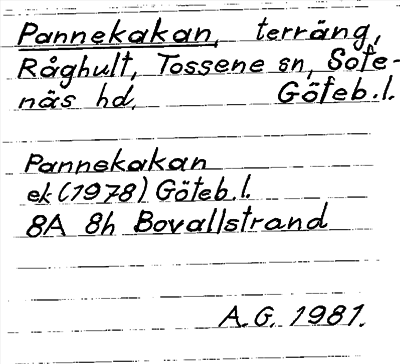 Pannekakan, terräng,
Råghult, Tossene sn, Sote-
näs hd. Göteb.l.
Pannekakan
ek (1978) Göteb.l.
8A 8h Bovallstrand
A.G. 1981.